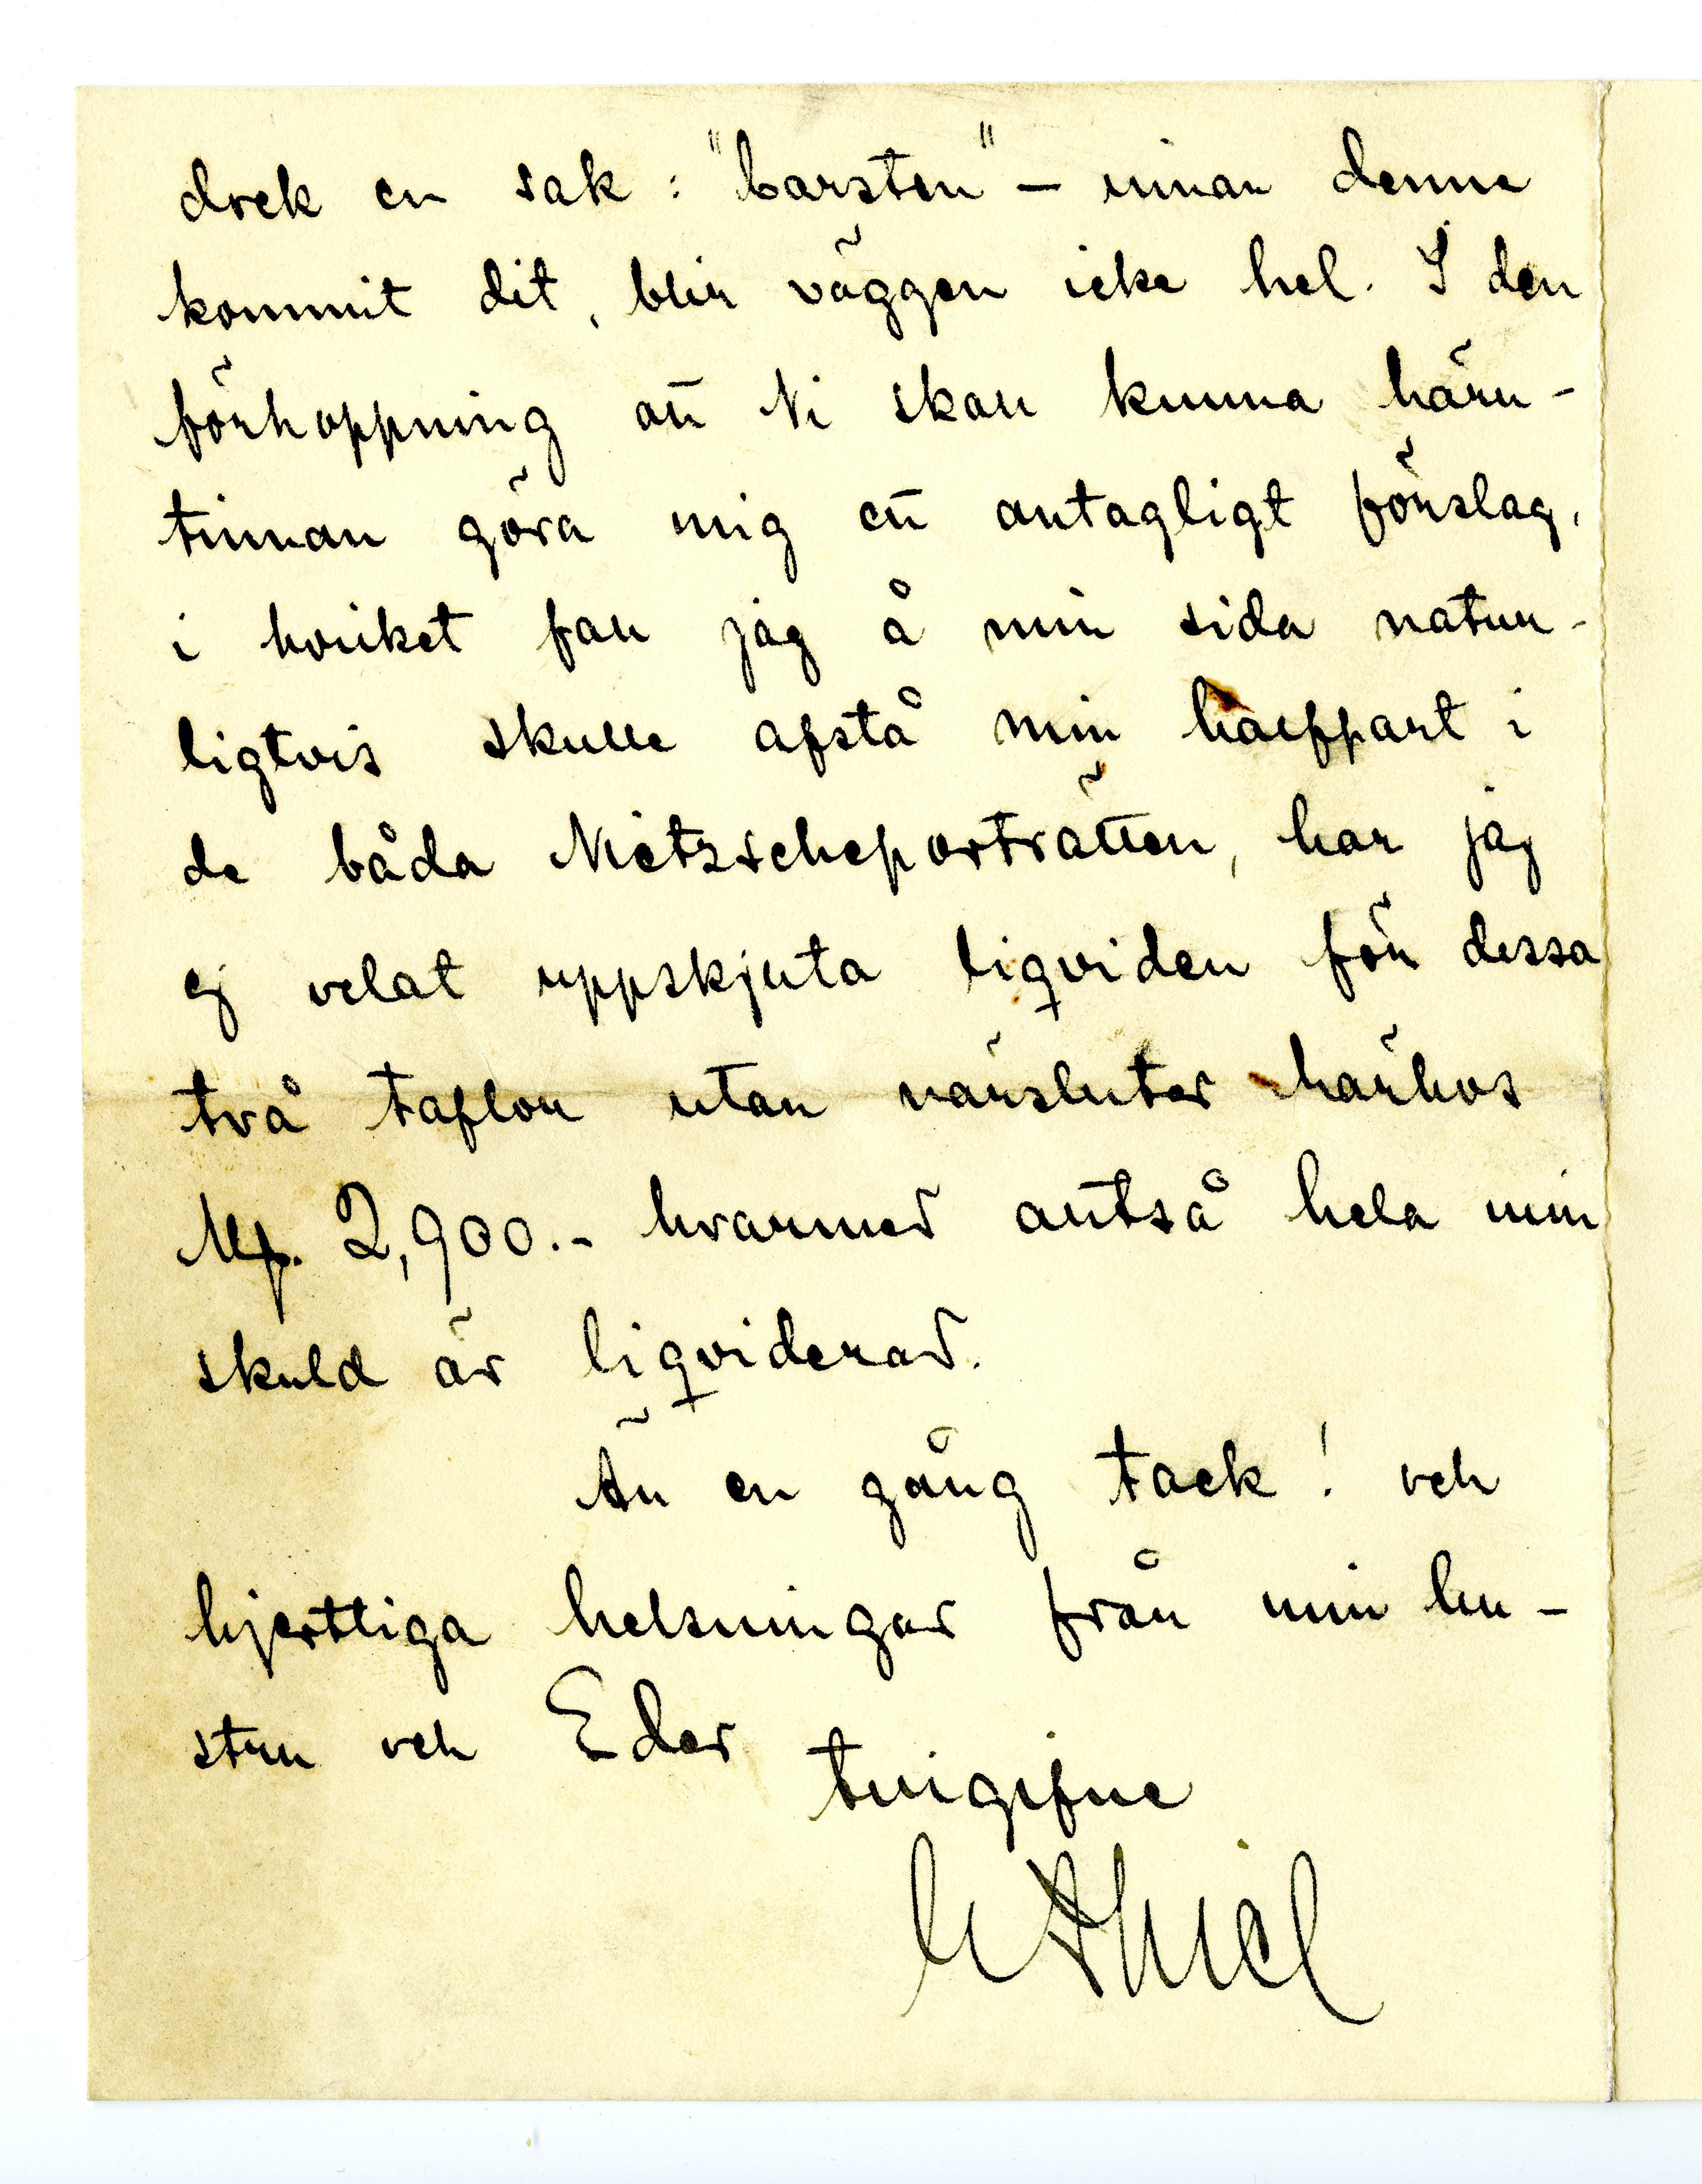 dock en sak: "Carsten" – innan denne
kommit dit, blir väggen icke hel. I den
förhoppning att Ni skall kunna häru-
tinnan göra mig ett antagligt förslag,
i hvilket fall jag å min sida natur-
ligtvis skulle afstå min hälftpart i
de båda Nietzscheporträtten, har jag
ej velat uppskjuta liqviden för dessa
två taflor utan närsluter härhos
Mk. 2,900.- hvarmed alltså hela min
skuld är liqviderad.
Än en gång tack! och
hjertliga helsningar från min hu-
stru och Eder
tillgifne
E Thiel